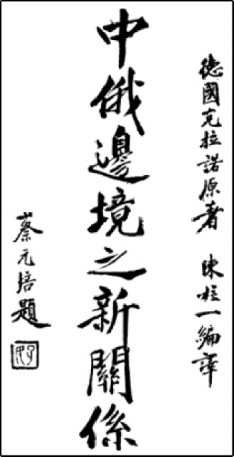 德國克拉諾原者 陳柱一編譯
中俄邊境之新關係
蔡元培題